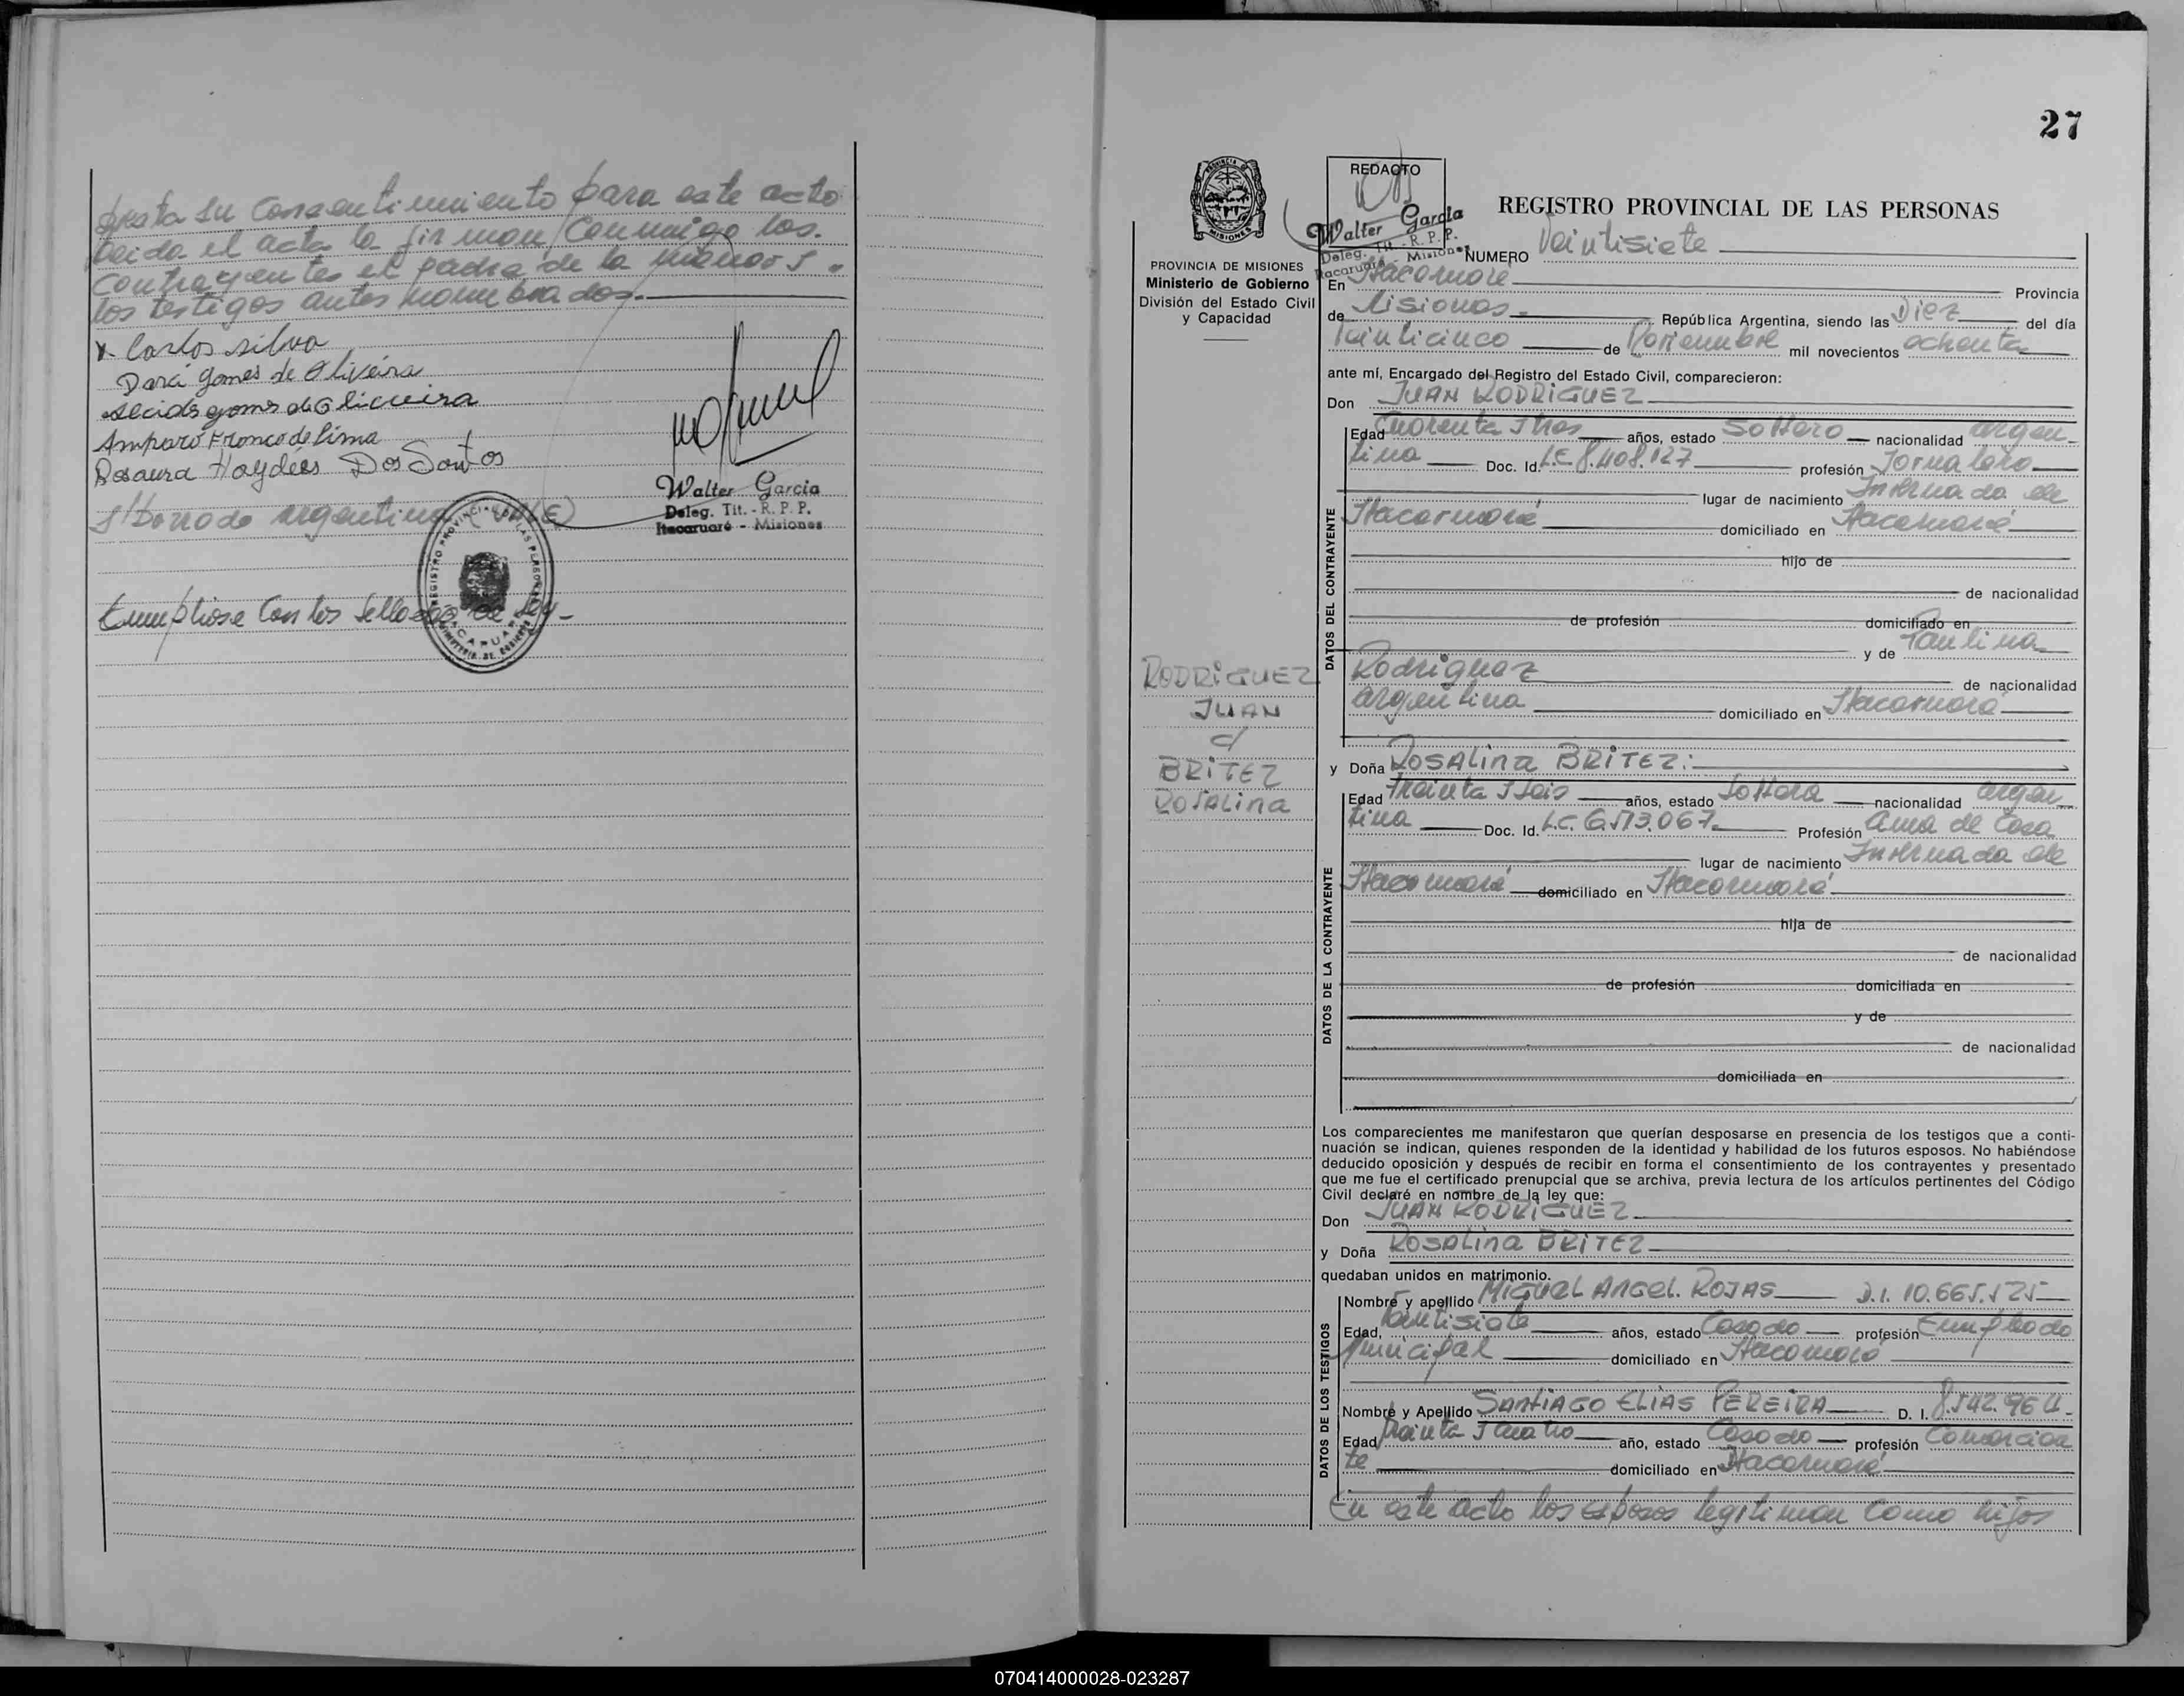 presta su Consentimiento para este acto
Leida el acta la firman Conmigo los
Contrayentes el padre de la menor y
los testigos antes nombrados.
x Carlos silva
Darci gomes de Oliveira
Alcides gomes de Oliveira
Amparo Franco de lima
Rosaura Haydées Dos Santos
S/Borrado argentina (VALE)
Walter Garcia
Deleg. Tit. - R. P. P.
Itacaruaré - Misiones
REGISTRO PROVINCIAL DE LAS PERSONAS
ITACARUARE
MINISTERIO DE GOBIERNO
Cumpliose Con los Sellados de Ley -
27
PROVINCIA DE MISIONES
Ministerio de Gobierno
División del Estado Civil
y Capacidad
RODRIGUEZ
JUAN
c/
BRITEZ
ROSALINA
REDACTO
Walter Garcia
Deleg. Tit. - R. P. P.
Itacaruaré - Misiones
REGISTRO PROVINCIAL DE LAS PERSONAS
NUMERO Veintisiete
En Itacaruaré Provincia
de Misiones República Argentina, siendo las Diez del día
Veinticinco de Noviembre mil novecientos ochenta
ante mí, Encargado del Registro del Estado Civil, comparecieron:
Don JUAN RODRIGUEZ
DATOS DEL CONTRAYENTE
Edad Cuarenta y tres años, estado Soltero nacionalidad argen-
tina Doc. Id. L.E. 8.408.127 profesión Jornalero
lugar de nacimiento Invernada de
Itacaruaré domiciliado en Itacaruaré
hijo de
de nacionalidad
de profesión domiciliado en
y de Paulina
Rodriguez de nacionalidad
argentina domiciliado en Itacaruaré
y Doña ROSALINA BRITEZ:
DATOS DE LA CONTRAYENTE
Edad treinta y seis años, estado Soltera nacionalidad argen
tina Doc. Id. L.C. 6.513.067 Profesión ama de Casa
lugar de nacimiento Invernada de
Itacaruaré domiciliado en Itacaruaré
hija de
de nacionalidad
de profesión domiciliada en
y de
de nacionalidad
domiciliada en
Los comparecientes me manifestaron que querían desposarse en presencia de los testigos que a conti-
nuación se indican, quienes responden de la identidad y habilidad de los futuros esposos. No habiéndose
deducido oposición y después de recibir en forma el consentimiento de los contrayentes y presentado
que me fue el certificado prenupcial que se archiva, previa lectura de los artículos pertinentes del Código
Civil declaré en nombre de la ley que:
Don JUAN RODRIGUEZ
y Doña ROSALINA BRITEZ
quedaban unidos en matrimonio.
DATOS DE LOS TESTIGOS
Nombre y apellido MIGUEL ANGEL ROJAS D.I. 10.665.525
Edad, Veintisiete años, estado Casado profesión Empleado
Municipal domiciliado en Itacaruaré
Nombre y Apellido SANTIAGO ELIAS PEREIRA D. I. 8.542.964
Edad treinta y cuatro año, estado Casado profesión Comercian
te domiciliado en Itacaruaré
En este acto los esposos legitiman como hijos
070414000028-023287